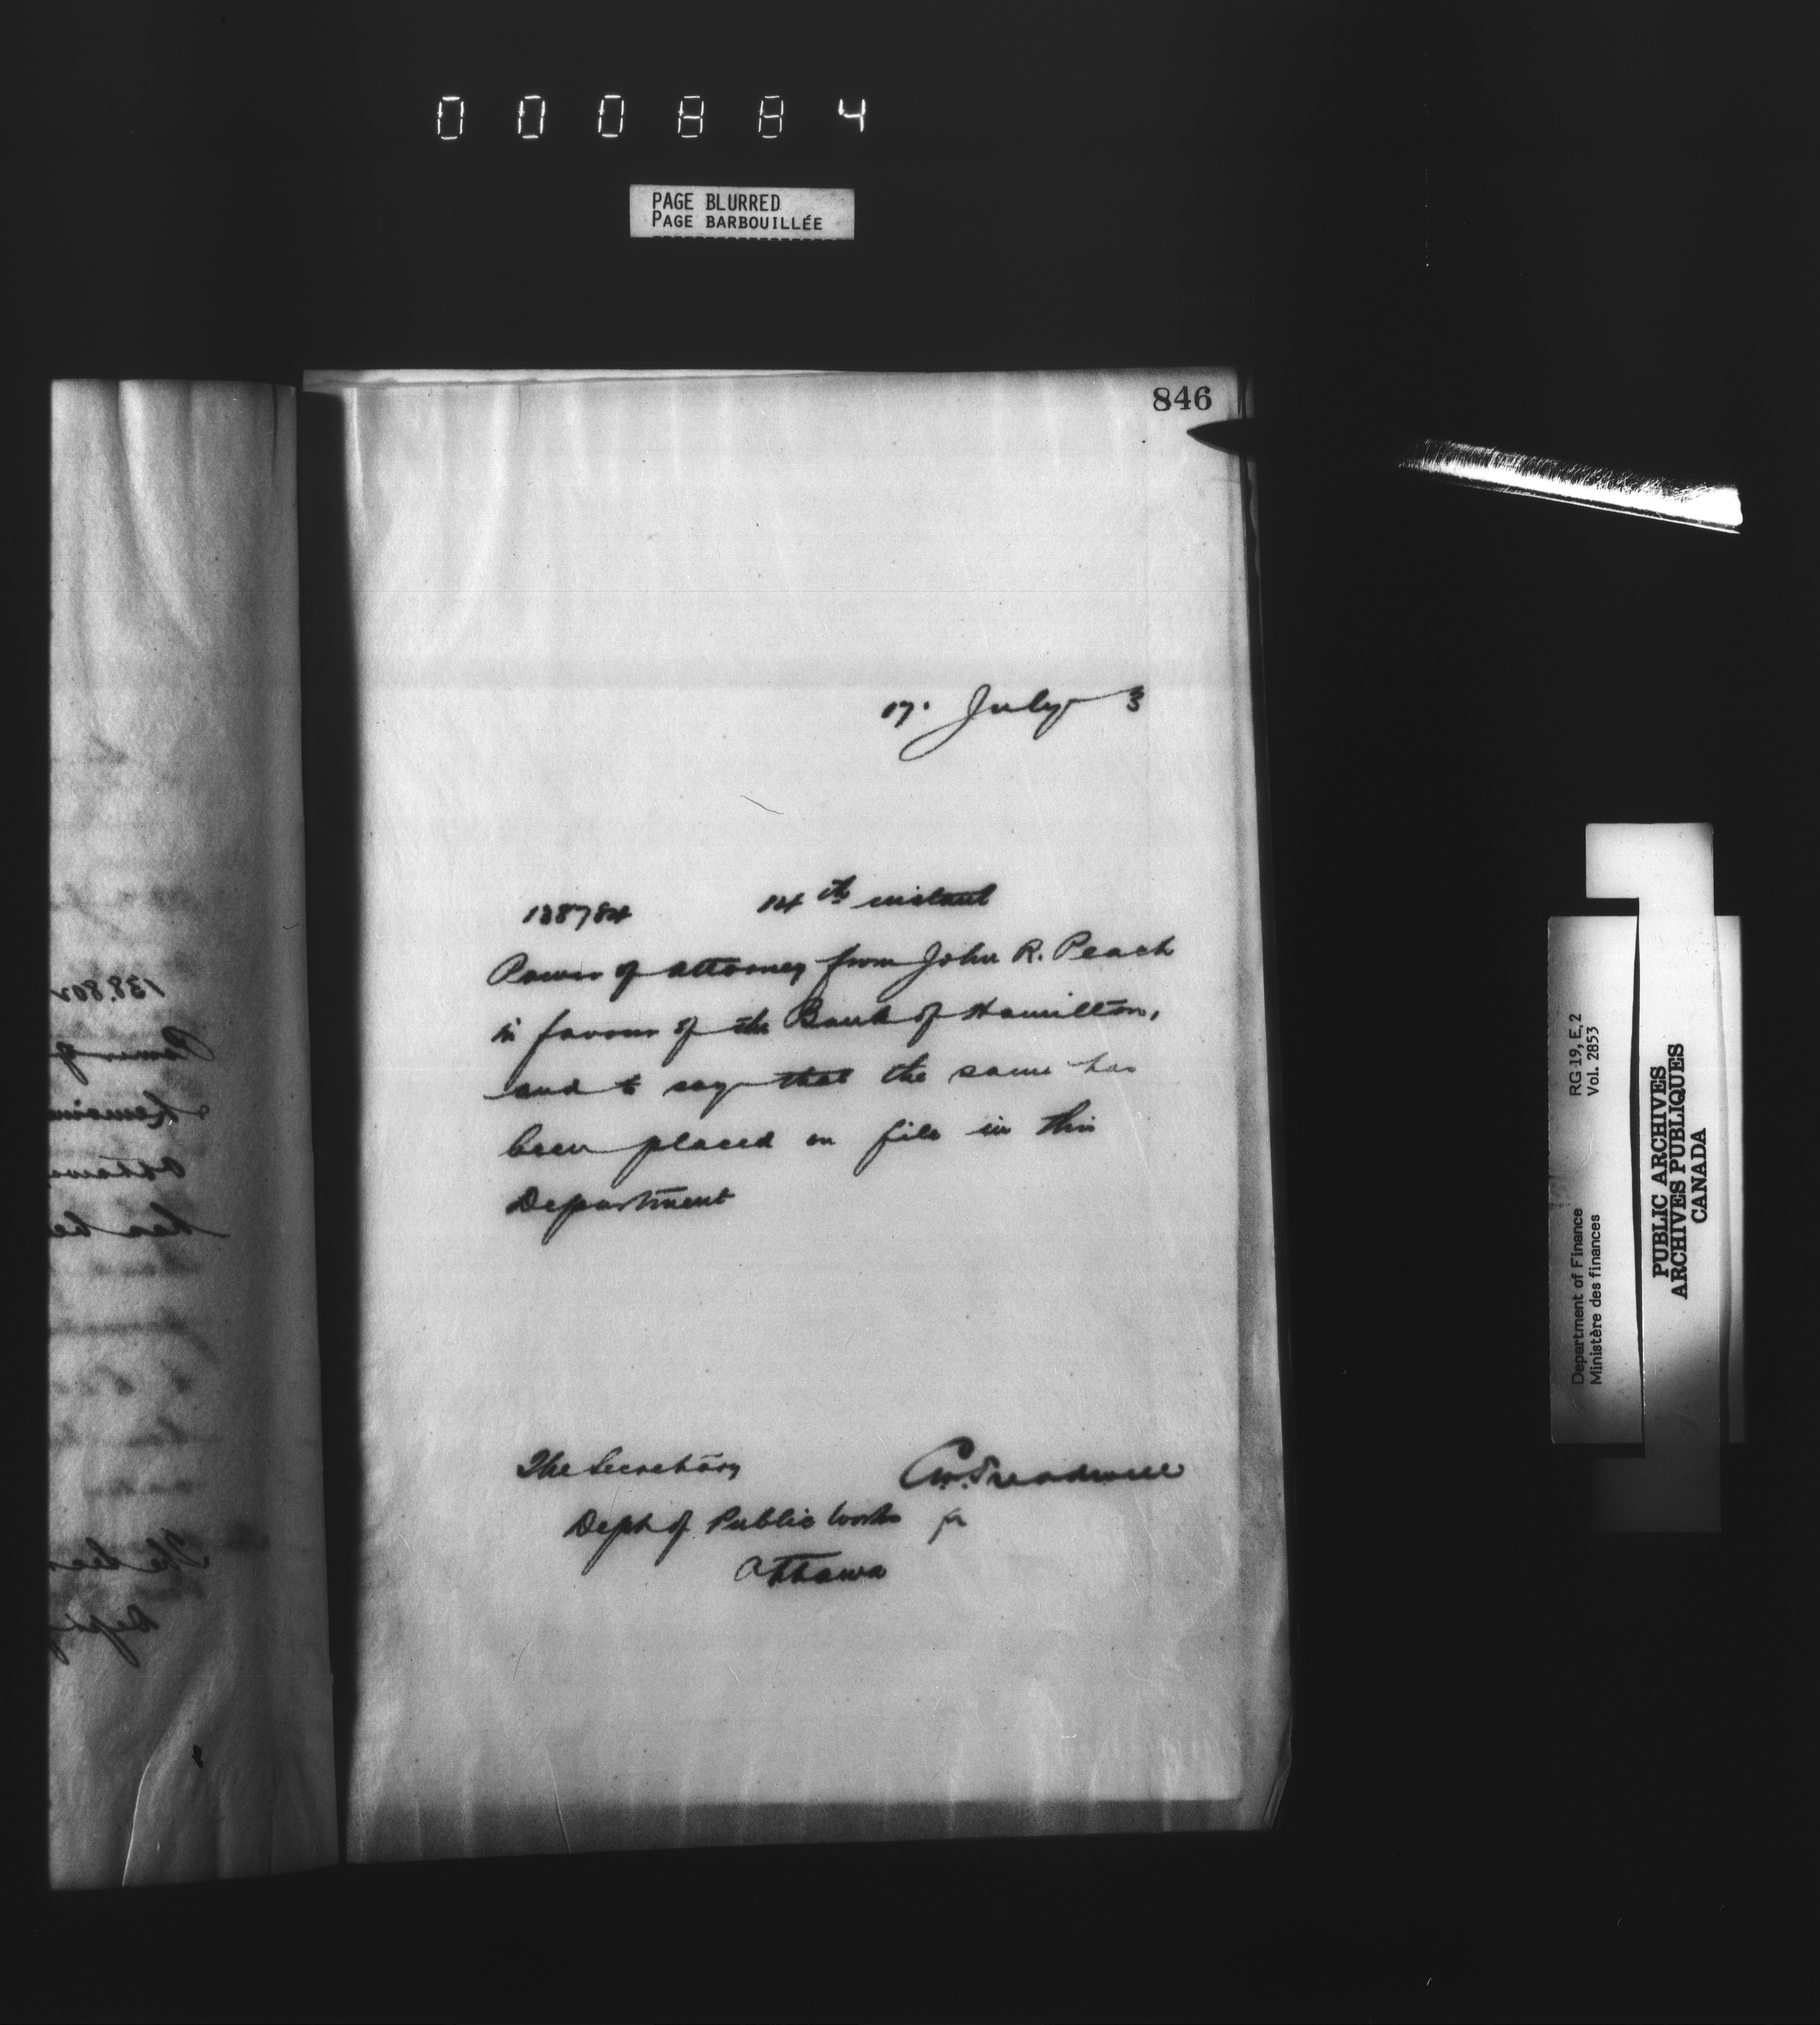 000884
PAGE BLURRED
PAGE BARBOUILLÉE
846
17. July 3
138784 14th instant
Power of Attorney from John R. Peach
in favour of the Bank of Hamilton,
and to say that the same has
been placed on file in this
Department
The Secretary
Dept of Public Works
Ottawa
Treadwell
for
138.802
Power of
Ottawa
has be
The Sec
Dept of
RG 19, E, 2
Vol. 2853
Department of Finance
Ministère des finances
PUBLIC ARCHIVES
ARCHIVES PUBLIQUES
CANADA